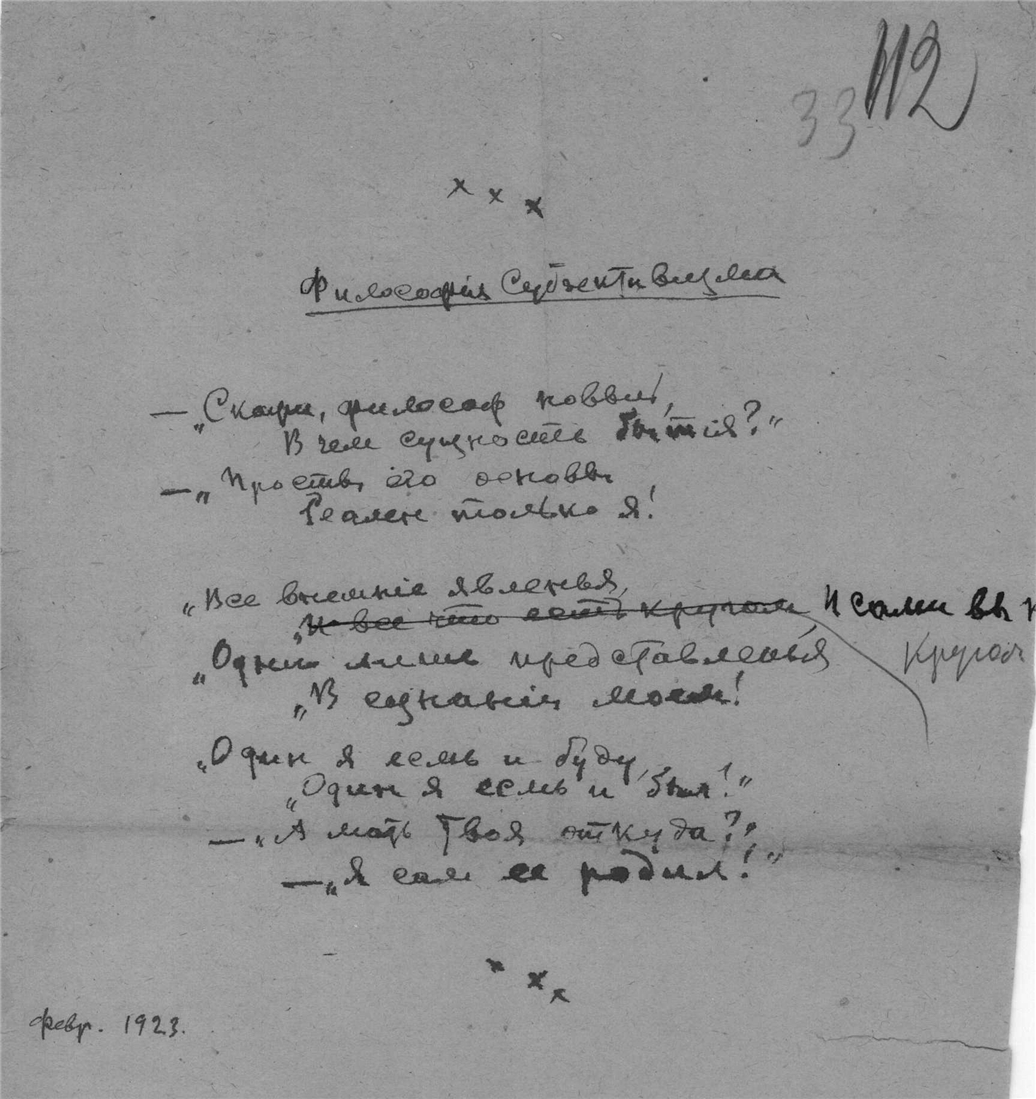 33 112
× × ×
Философія Субъективизма
— „Скажи, философ новый,
В чем сущность бытія?“
— „Просты его основы
Реален только я!
„Все внешніе явленья,
„И все что есть кругом И сами вы
кругом
„Одни лишь представленья
„В сознаніи моем!
„Один я есмь и буду,
„Один я есмь и был!“
— „А мать Твоя откуда?“
— „Я сам ее родил!“
× × ×
февр. 1923.